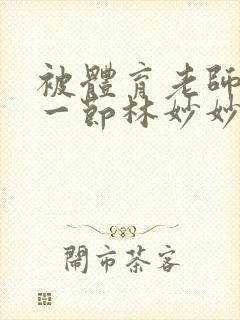 被體育老師
一節林妙妙
鬧市茶客